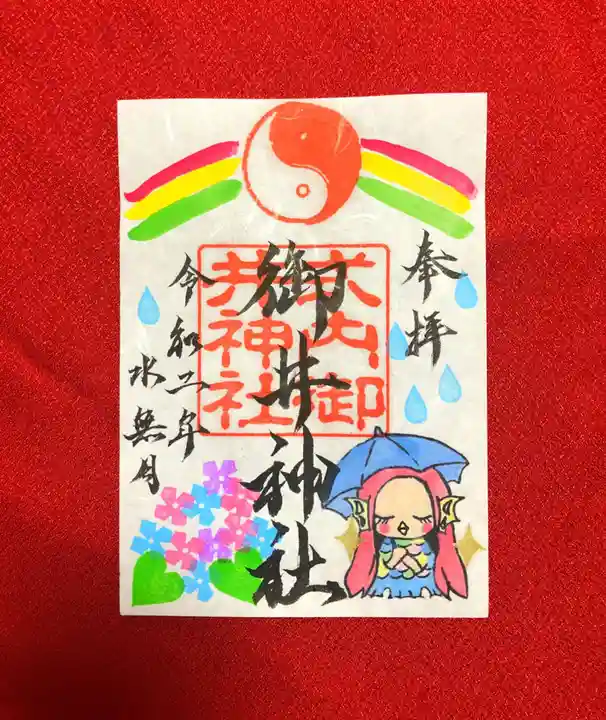 奉拝
御井神社
式内御
井神社
令和二年
水無月